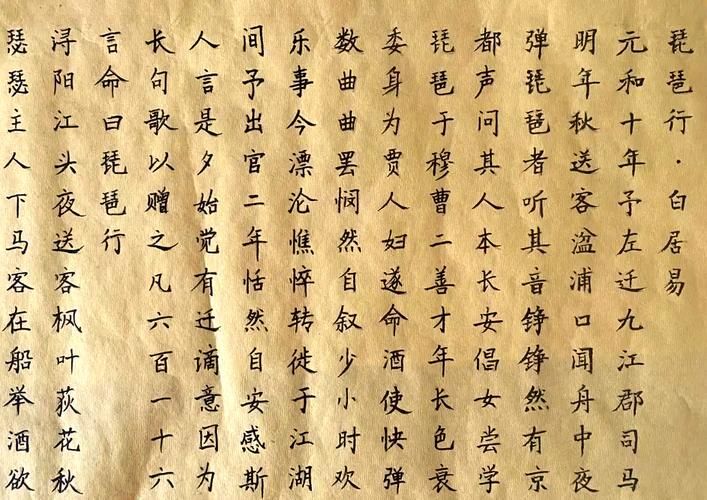 琵琶行·白居易
元和十年予左迁九江郡司马
明年秋送客湓浦口闻舟中夜
弹琵琶者听其音铮铮然有京
都声问其人本长安倡女尝学
琵琶于穆曹二善才年长色衰
委身为贾人妇遂命酒使快弹
数曲曲罢悯然自叙少小时欢
乐事今漂沦憔悴转徙于江湖
间予出官二年恬然自安感斯
人言是夕始觉有迁谪意因为
长句歌以赠之凡六百一十六
言命曰琵琶行
浔阳江头夜送客枫叶荻花秋
瑟瑟主人下马客在船举酒欲